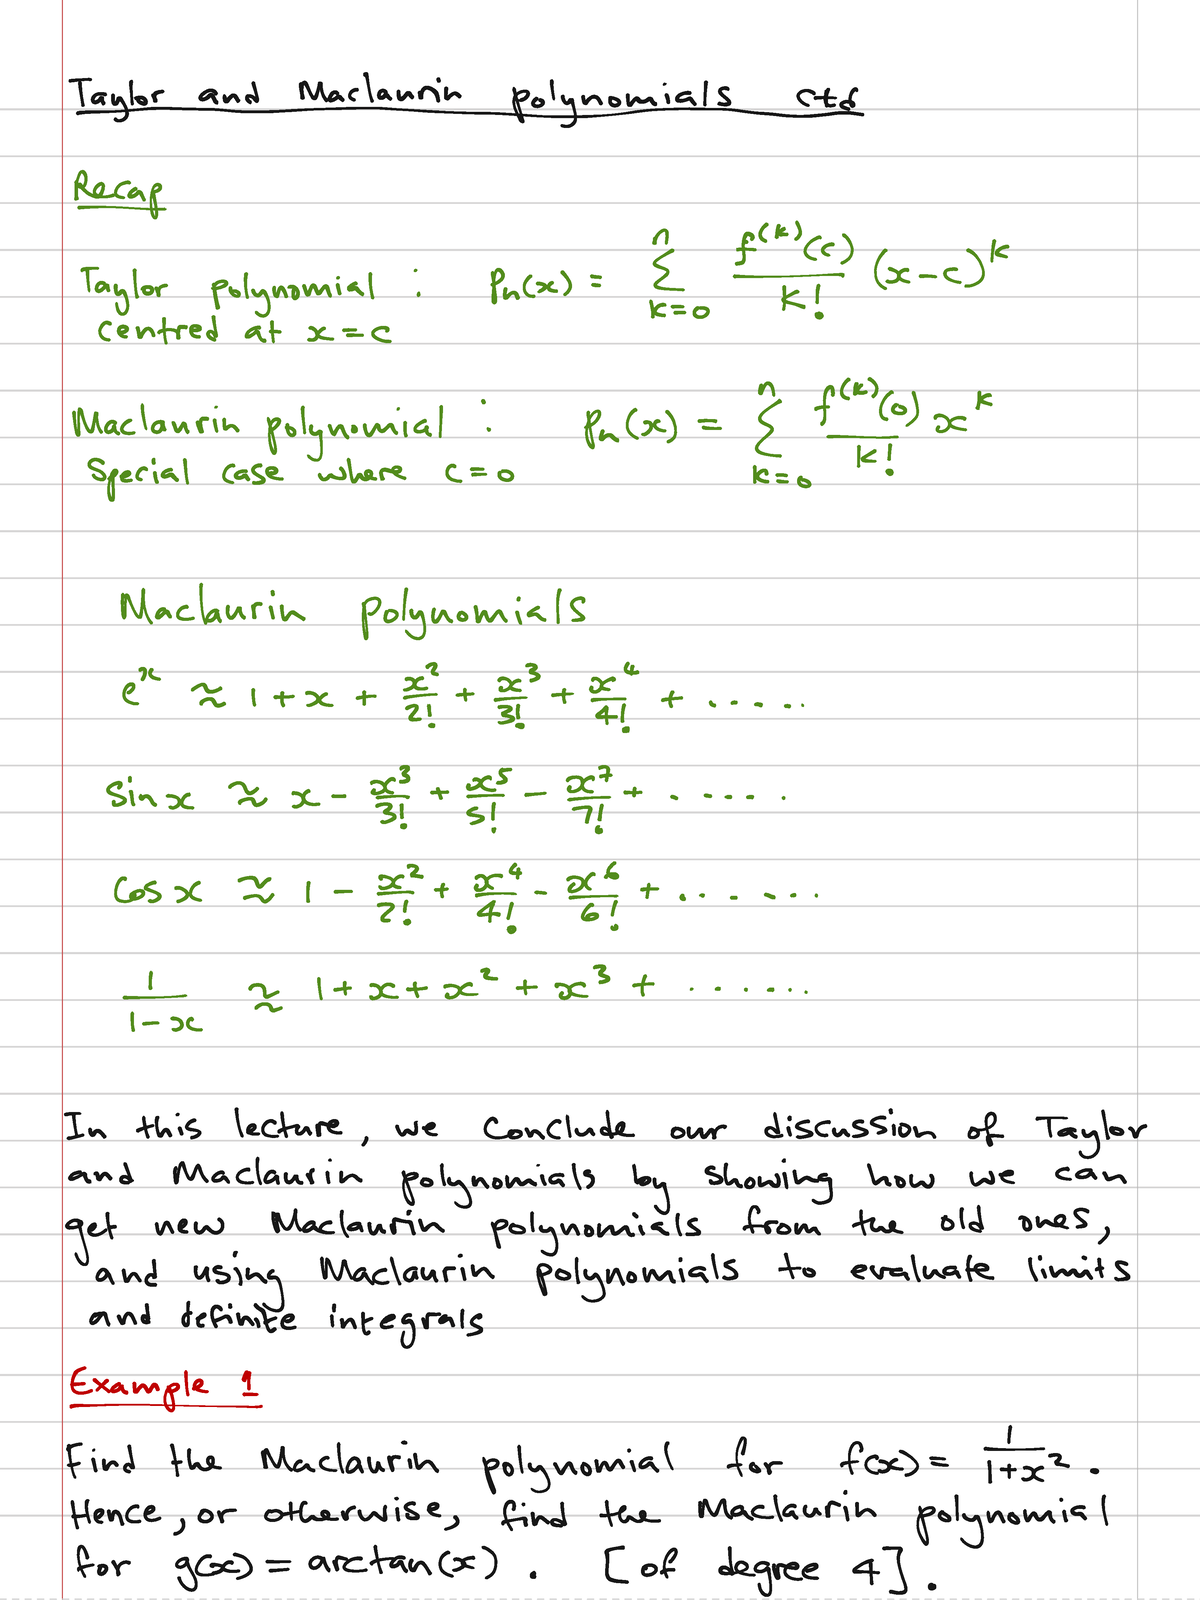 Taylor and Maclaurin polynomials ctd
Recap
Taylor polynomial : Pn(x) = n Σ k=0 f^(k)(c)/k! (x-c)^k
centred at x=c
Maclaurin polynomial : Pn(x) = n Σ k=0 f^(k)(0)/k! x^k
Special case where c=0
Maclaurin polynomials
e^x ≈ 1+x + x^2/2! + x^3/3! + x^4/4! + .....
Sin x ≈ x - x^3/3! + x^5/5! - x^7/7! + ......
Cos x ≈ 1 - x^2/2! + x^4/4! - x^6/6! + ......
1/(1-x) ≈ 1+x+x^2+x^3+ ......
In this lecture, we conclude our discussion of Taylor
and Maclaurin polynomials by showing how we can
get new Maclaurin polynomials from the old ones,
and using Maclaurin polynomials to evaluate limits
and definite integrals
Example 1
Find the Maclaurin polynomial for f(x) = 1/(1+x^2) .
Hence, or otherwise, find the Maclaurin polynomial
for g(x) = arctan(x) . [of degree 4].